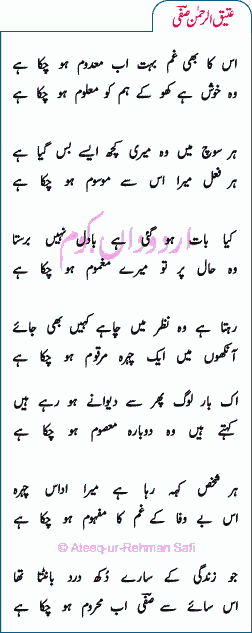 عتیق الرحمٰن صفی
اس کا بھی غم بہت اب معدوم ہو چکا ہے
وہ خوش ہے کھو کے ہم کو معلوم ہو چکا ہے
ہر سوچ میں وہ میری کچھ ایسے بس گیا ہے
ہر فعل میرا اس سے موسوم ہو چکا ہے
کیا بات ہو گئی ہے بادل نہیں برستا
وہ حال پر تو میرے مغموم ہو چکا ہے
رہتا ہے وہ نظر میں چاہے کہیں بھی جائے
آنکھوں میں ایک چہرہ مرقوم ہو چکا ہے
اک بار لوگ پھر سے دیوانے ہو رہے ہیں
کہتے ہیں وہ دوبارہ معصوم ہو چکا ہے
ہر شخص کہہ رہا ہے میرا اداس چہرہ
اس بے وفا کے غم کا مفہوم ہو چکا ہے
© Ateeq-ur-Rehman Safi
جو زندگی کے سارے دُکھ درد بانٹتا تھا
اس سائے سے صفی اب محروم ہو چکا ہے
اردوداں.کوم